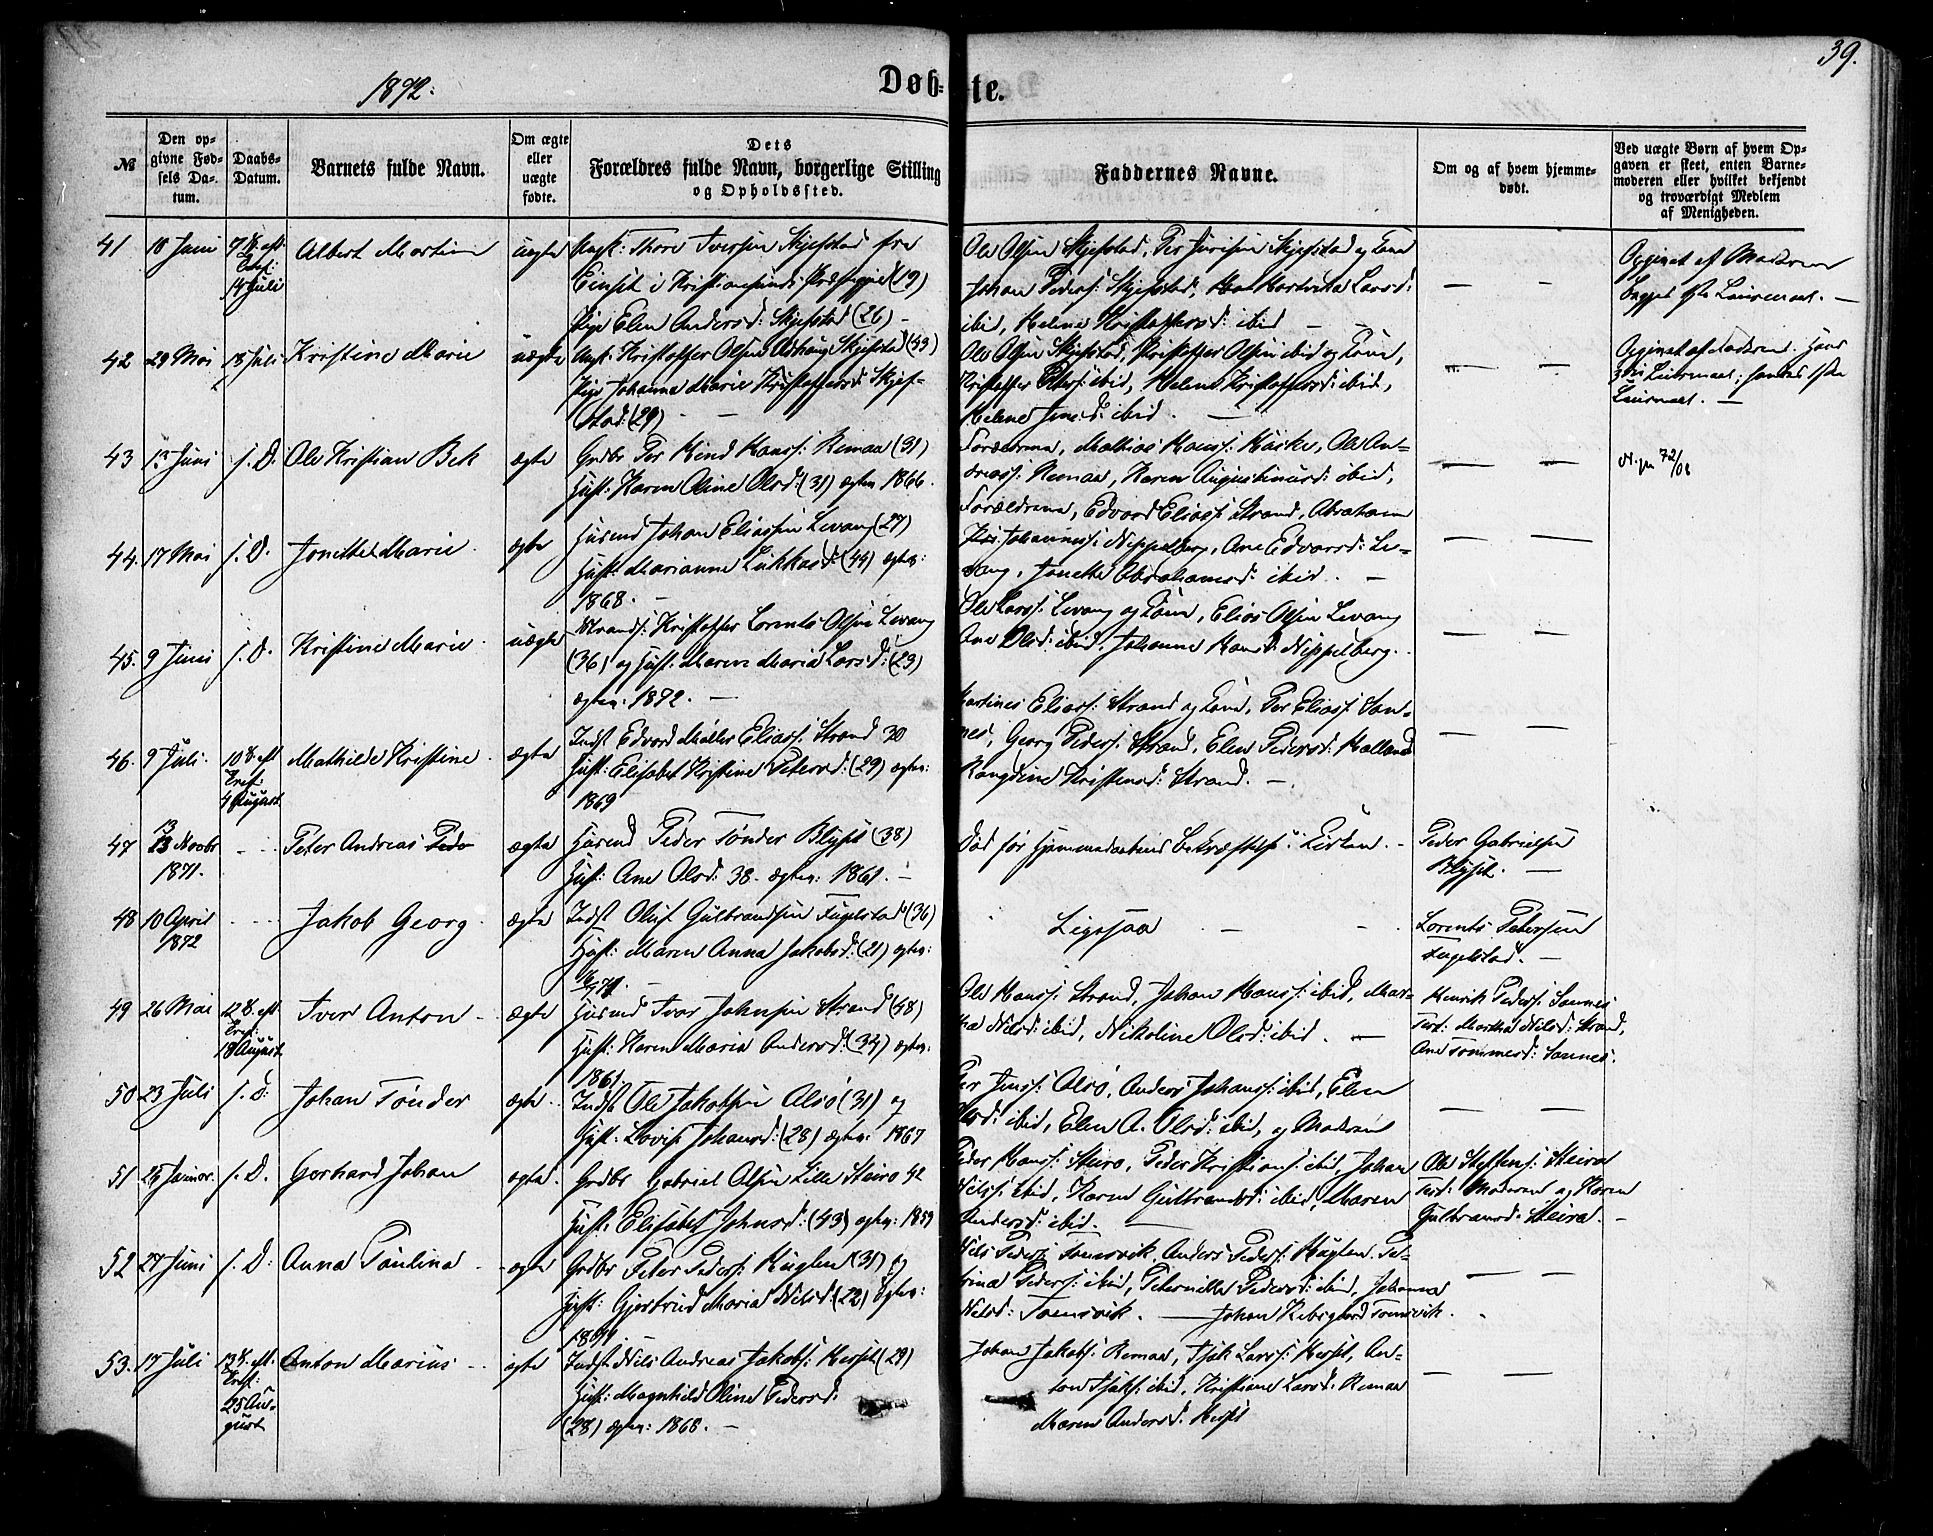 39.
1872.
Døbte.
№
Den opgivne Fødsels Datum.
Daabs-Datum.
Barnets fulde Navn.
Om ægte eller uægte fødte.
Dets Forældres fulde Navn, borgerlige Stilling og Opholdssted.
Faddernes Navne.
Om og af hvem hjemmedøbt.
Ved uægte Børn af hvem Opgaven er skeet, enten Barnemoderen eller hvilket bekjendt og troværdigt Medlem af Menigheden.
41 18 Juni 7 S. eft. Tref: 14 Juli Albert Martin uægte Ungk: Thore Iversen Skjefstad fra
Kristiansunds Præstegjeld (19)
Pige Elen Andersd: Skjefstad (26) -
Ole Olsen Skjefstad, Per Skjefstad og Kone
Johan Peders: Skjefstad, Larsd:
ibid, Helene Kristoffersd: ibid
Opgivet af Moderen
Begges 1ste Leiermaal. —
42 29 Mai 18 Juli Kristine Marie uægte Ungk: Kristoffer Olsen Skjefstad (43)
Pige Johanna Marie Kristoffersd: Skjefstad (29)
Ole Olsen Skjefstad, Kristoffer Olsen ibid og Kone,
Kristoffer Peders: ibid, Helene Kristoffersd: ibid,
Helene Jensd: ibid.
Opgivet af Moderen. Hans
3die Leiermaal; hendes 1ste
Leiermaal. —
43 13 Juni s. D. Ole Kristian Bek ægte Grdbr Per Kind Hanss: Remaa (31)
Hust: Karen Oline Olsd: (31) ægtev. 1866.
Forældrene, Mathias Hanss: , Ole Andreass: Remaa, Karen Augustinusd: ibid,
72/08
44. 17 Mai s. D. Jonette Marie ægte Husmd Johan Eliassen Levang (27)
Hust: Marianne Lukkasd: (44) ægtev:
1868. —
Forældrene, Edvard Eliass: Strand, Abraham
Johanness: Nippelberg, Ane Edvardsd: Levang, Jonette Abrahamsd: ibid. —
45. 9 Juni s. D. Kristine Marie uægte Strands: Kristoffer Lorents Olsen Levang
(36) og Hust: Maren Maria Larsd: (23)
ægtev. 1872. —
Ole Larss: Levang og Kone, Elias Olsen Levang
Ane Olsd: ibid, Johanne Hansd: Nippelberg.
46. 9 Juli 10 S. eft Tref 4 August Mathilde Kristine ægte Indst Edvard Møller Eliass: Strand 30
Hust: Elisabet Kristine Petersd: (29) ægtev:
1869
Martines Eliass: Strand og Kone, Per Eliass: Sannes, Georg Peders: Strand, Elen Pedersd:
Kristensd: Strand. —
47 13 Novbr 1871. Peter Andreas ægte Husmd Peder Tønder Blixt (38)
Hust: Ane Olsd: 38. ægtev: 1861. —
Død før Hjemmedaabens Bekræftelse i Kirken.
Peder Gabrielsen
48 10 April 1872 Jakob Georg ægte Indst Oluf Gulbrandsen Fugelstad (36)
Hust: Maren Anna Jakobsd: (21) ægtev:
Ligesaa
Lorents Petersen
Fugelstad. —
49 26 Mai 12 S. eft Tref: 18 August Iver Anton ægte Husmd Ivar Johnsen Strand (48)
Hust: Karen Maria Andersd: (34) ægtev:
1861
Ole Hanss: Strand, Johan Hanss: ibid, Martha Nilsd: ibid, Nikoline Olsd: ibid. —
Henrik Peders: Sannes
Test: Martha Nilsd: Strand,
Ane Tommesd: Sannes.
50 23 Juli s. D: Johan Tønder ægte Indst Ole Jakobsen Alsø (31) og
Hust: Lovise Johansd: (28) ægtev: 1867
Per Jenss: Alsø, Anders Johanss: ibid, Elen
Olsd: ibid, Elen A. Olsd: ibid, og Moderen
51 25 Januar s. D. Gerhard Johan ægte Grdbr Gabriel Olsen Lille Steiro 42
Hust: Elisabet Johnsd: (43) ægtev: 1859
Peder Hanss: Steiro, Peder Kristians: ibid, Johan
Nilss: ibid, Karen Gulbrandsd: ibid, Maren
Andersd: ibid. —
Ole Steffens: Steira
Test: Moderen og Karen
Gulbransd: Steira. —
52 27 Juni s. D: Anna Paulina ægte Grdbr Peter Peders: Kuglen (31) og
Hust: Gjertrud Maria Nilsd: (22) ægtev:
Nils Peders: Tonesvik, Anders Peders: Kuglen, Petrina Pedersd: ibid, Peternille Pedersd: ibid, Johanna
Nilsd: Tonesvik. — Johan Tonesvik.
53. 17 Juli 13 S. eft: Tref: 25 August Anton Marius ægte Indst Nils Andreas Jakobs: (29)
Hust: Magnhild Oline Pedersd:
(28) ægtev: 1868. —
Johan Jakobs: Remaa, Isak Larss: , Anton Isaks: ibid, Kristiane Larsd: Remaa
Maren Andersd: